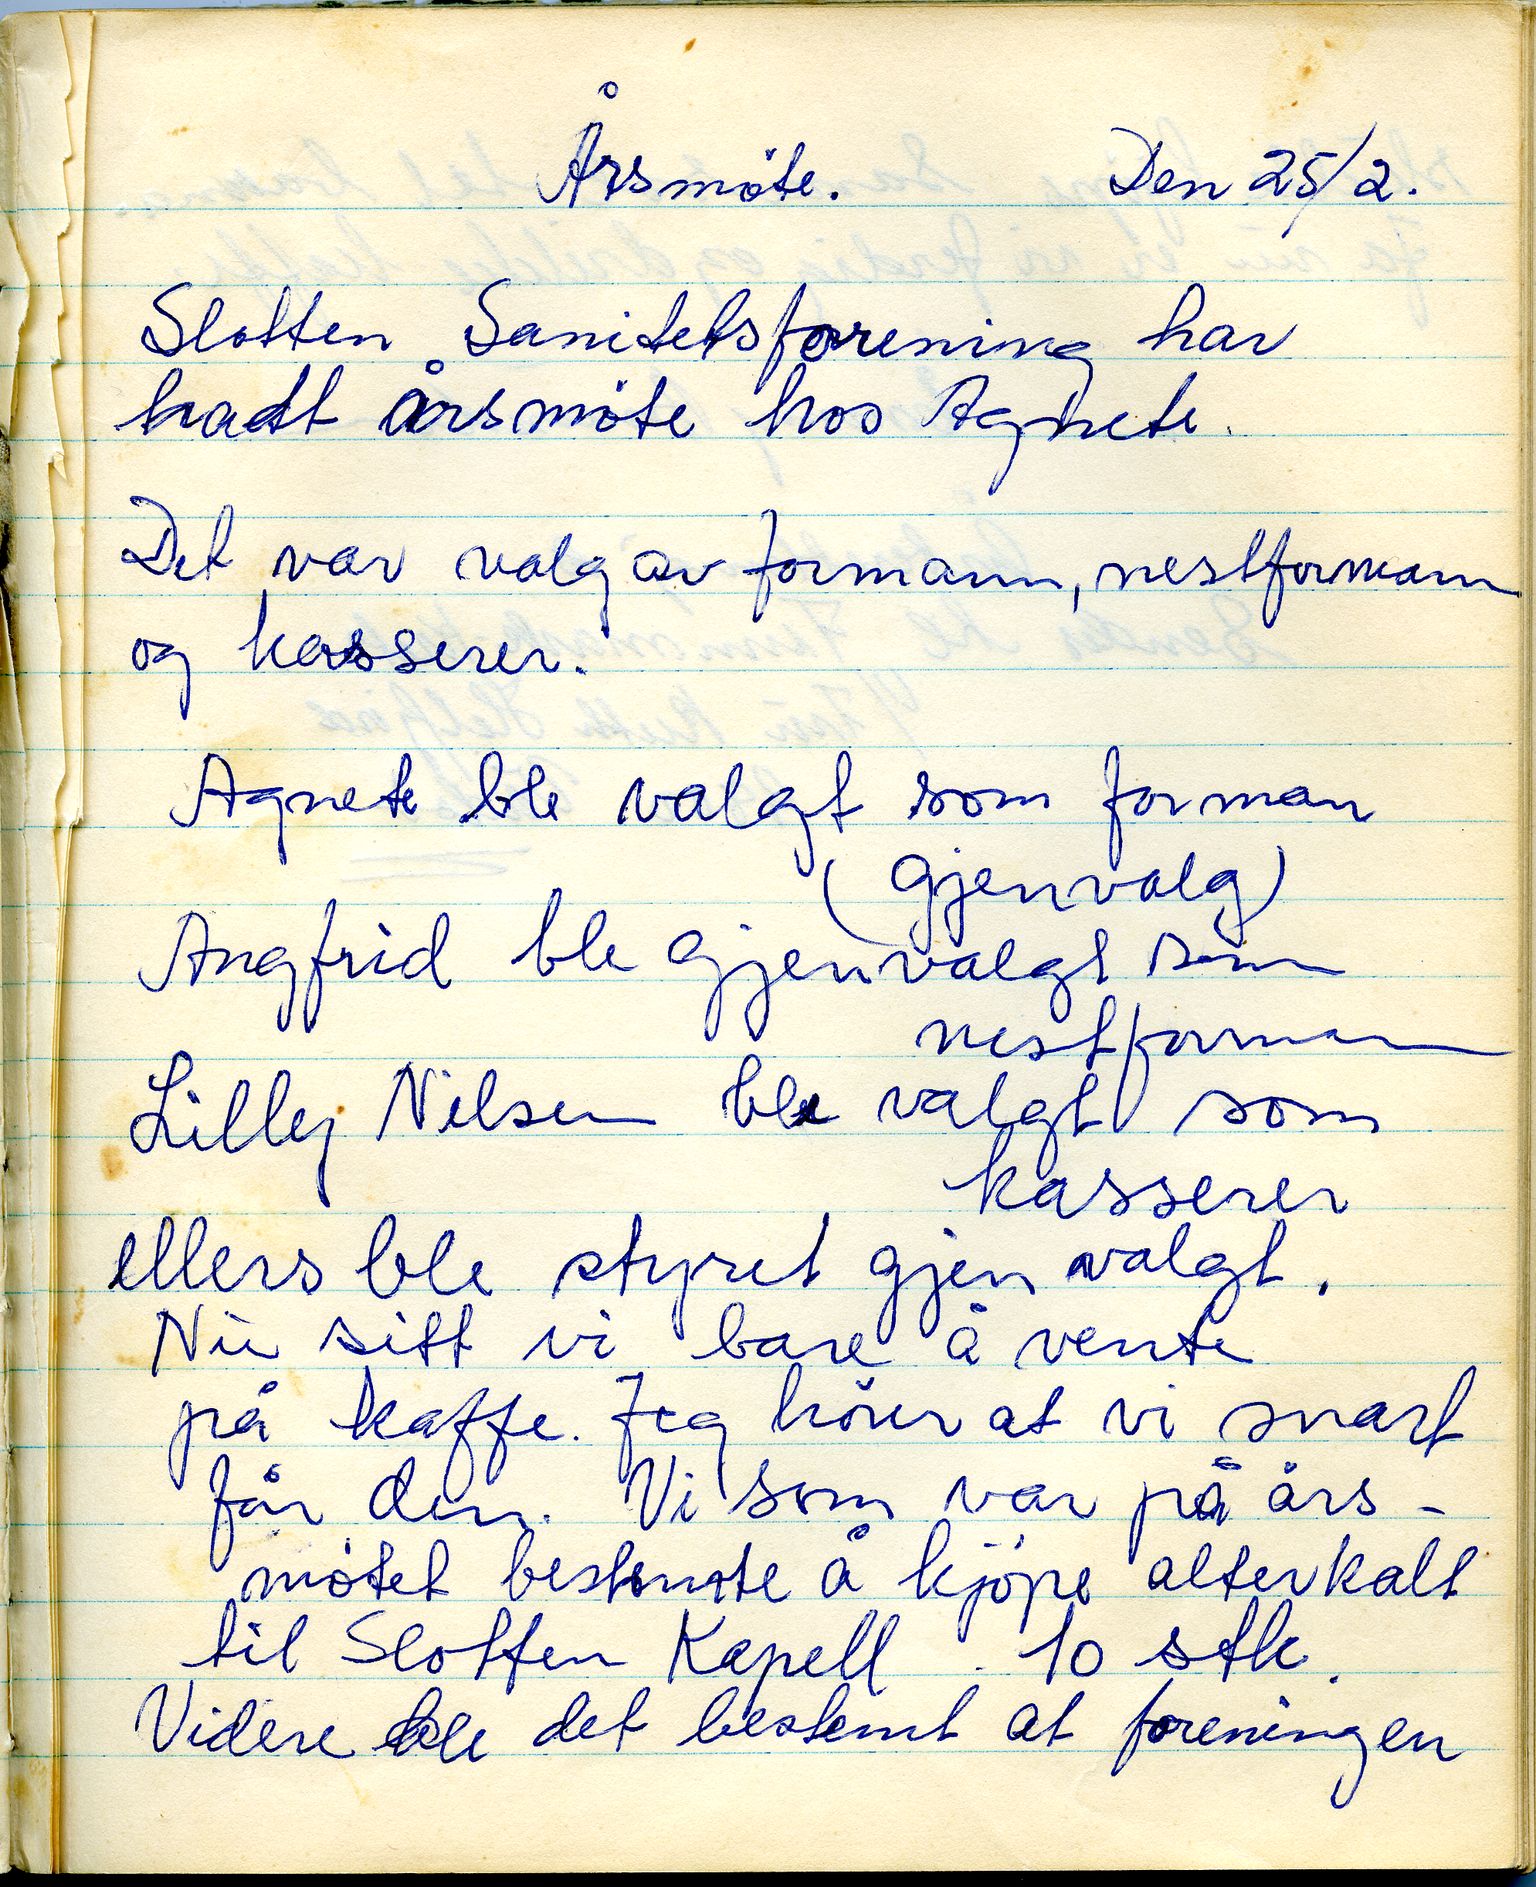 Årsmöte. Den 25/2.
Slotten Sanitetsforening har
hadt årsmöte hos Agnete.
Det var valg av formann, nestformann
og kasserer.
Agnete ble valgt som forman
(Gjenvalg)
Angfrid ble gjenvalgt som
nestformann
Lilly Nilsen ble valgt som
kasserer
ellers ble styret gjen valgt.
Nu sitt vi bare å vente
på kaffe. Jeg hörer at vi snart
får den. Vi som var på års-
mötet bestemte å kjöpe alterkalt
til Slotten Kapell. 10 stk.
Videre ble det bestemt at foreningen